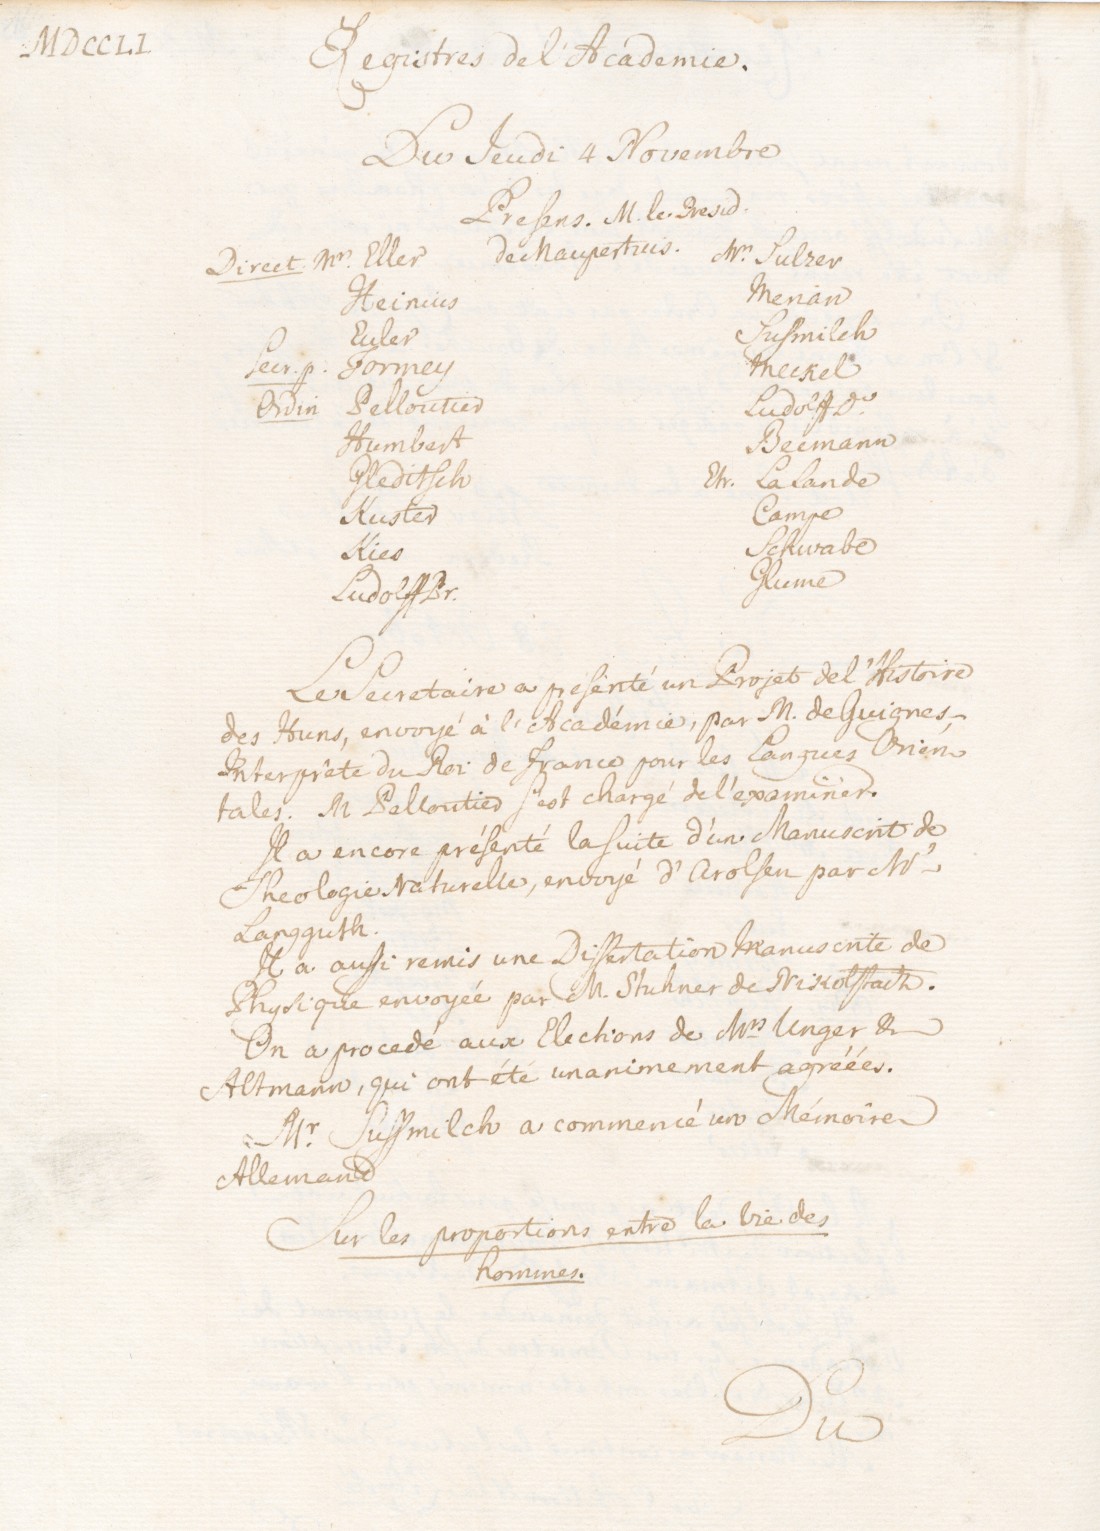 MDCCLI
Registres de l'Académie.
Du Jeudi 4 Novembre
Presens. M. le Presid.
de Maupertuis.
Direct. Mrs. Eller
Heinius
Euler
Secr. p. Formey
Ordin Pelloutier
Humbert
Gleditsch
Kuster
Kies
Ludolff Pr.
Mrs. Sulzer
Merian
Sussmilch
Meckel
Ludolff Dr.
Becmann
Etr. La Lande
Campe
Schwabe
Glume
Le Secretaire a présénté un Projet de l'Histoire
des Huns, envoyé à l'Académie, par M. de Guignes,
Interprête du Roi de France pour les Langues Orien
tales. M Pelloutier s'est chargé de l'examiner.
Il a encore présénté la suite d'un Manuscrit de
Theologie Naturelle, envoyé d'Arolsen par Mr
Langguth.
Il a aussi remis une Dissertation Manuscrite de
Physique envoyée par M. Stuhner de
On a procedé aux Elections de Mrs Unger &
Altmann, qui ont été unanimement agréées.
Mr. Sussmilch a commencé un Mémoire
Allemand
Sur les proportions entre la vie des
hommes.
Du